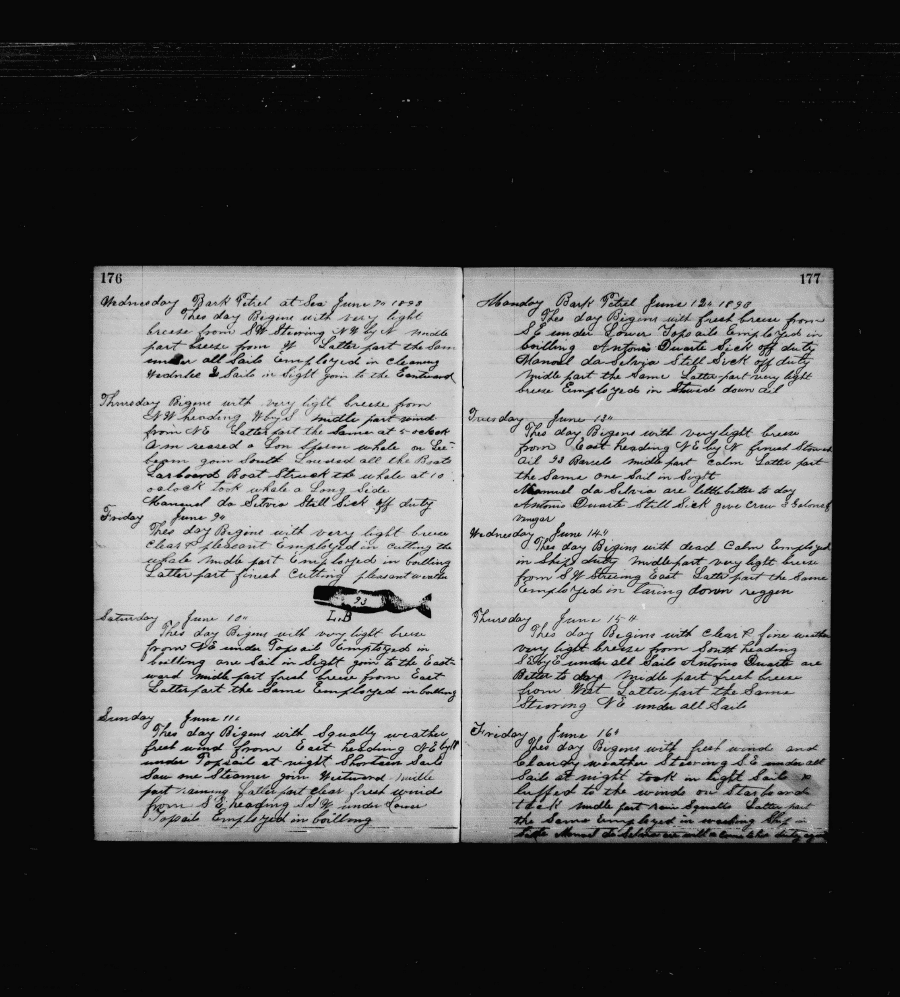 176
Wednesday Bark Petrel at Sea June 7" 1893
Thes day Begins with very light
breese from SW Stering NW by N midle
part breese from W Latter part the Same
under all Sails Employed in cleaning
Sails in Sight goin to the Eastward
Thursday Bigens with very light breeze from
NW heading W by S midle part wind
from NE Latter part the Same at 5-oclock
am reased a Lon Spirm whale on Lee-
beam goin South Loused all the Boats
Larboard Boat Struck the whale at 10
oclock Took whale a Long Side
Manuel da Silvia Still Sick off duty
Friday June 9"
Thes day Begins with very light breese
Clear & pleasent Employed in Cutting the
whale midle part Employed in boilling
Latter part finish Cutting pleasant weather
93
L.B
Saturday June 10"
Thes day Bigens with very light breese
from NE under Topsail Employed in
boilling one Sail in Sight goin to the East-
ward midle part fresh breese from East
Latter part the Same Employed in boilling
Sunday June 11"
Thes day Bigens with Squally weather
fresh wind from East heading NE by N
under Topsail at night Shorten Sail
Saw one Steamer goin Westward midle
part raining Latter part clear fresh winds
from SE heading SSW under Lower
Topsails Employed in boillong
177
Monday Bark Petrel June 12" 1893
Thes day Bigens with fresh breese from
SE under Lower Topsails Employed in
boilling Antonio Duarte Sick off duty
Manoel da Silvia Still Sick off duty
midle part the Same Latter part very light
breese Employed in Stwide down oil
Tuesday June 13"
Thes day Bigens with very light breese
from East heading NE by N finish Stowed
oil 93 Barels midle part calm Latter part
the Same one Sail in Sight
Manuel da Silvia are little beter to day
Antonio Duarte Still Sick give Crew 3 Galons of
vinegar
Wednesday June 14"
Thes day Begins with dead Calm Employed
in Ship's duty midle part very light breese
from SW Steering East Latter part the Same
Employed in taring down reggen
Thursday June 15"
Thes day Begins with Clear & fine weather
very light breese from South heading
SE by E under all Sails Antonio Duarte are
Better to day midle part fresh breese
from West Latter part the Same
Steering NE under all Sails
Friday June 16"
Thes day Begins with fresh winds and
Cloudy weather Steering SE under all
Sails at night took in light Sails
luffed to the winds on Starboard
tack midle part rain Squalls Latter part
the Same Employed in washing Ship in
Side Manuel da Silvia